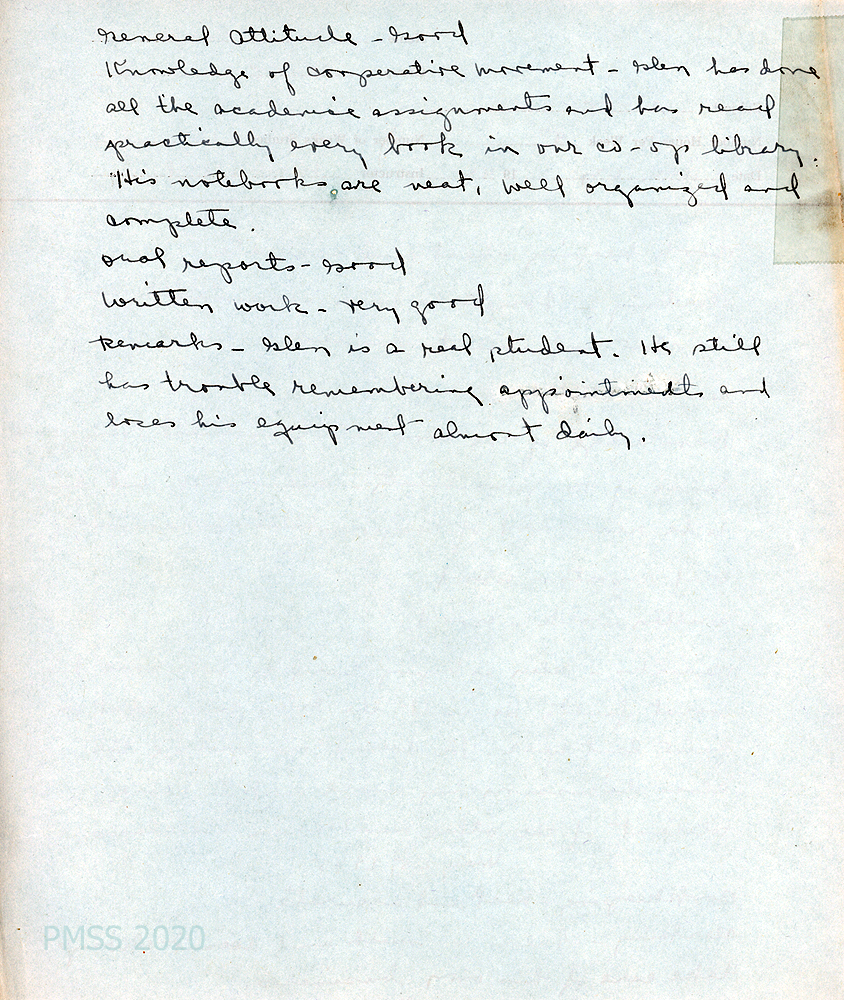 General Attitude - Good
Knowledge of cooperative movement - Glen has done
all the academic assignments and has read
practically every book in our co-op library.
His notebooks are neat, well organized and
complete.
Oral reports - Good
Written work - Very good
Remarks - Glen is a real student. He still
has trouble remembering appointments and
loses his equipment almost daily.
PMSS 2020